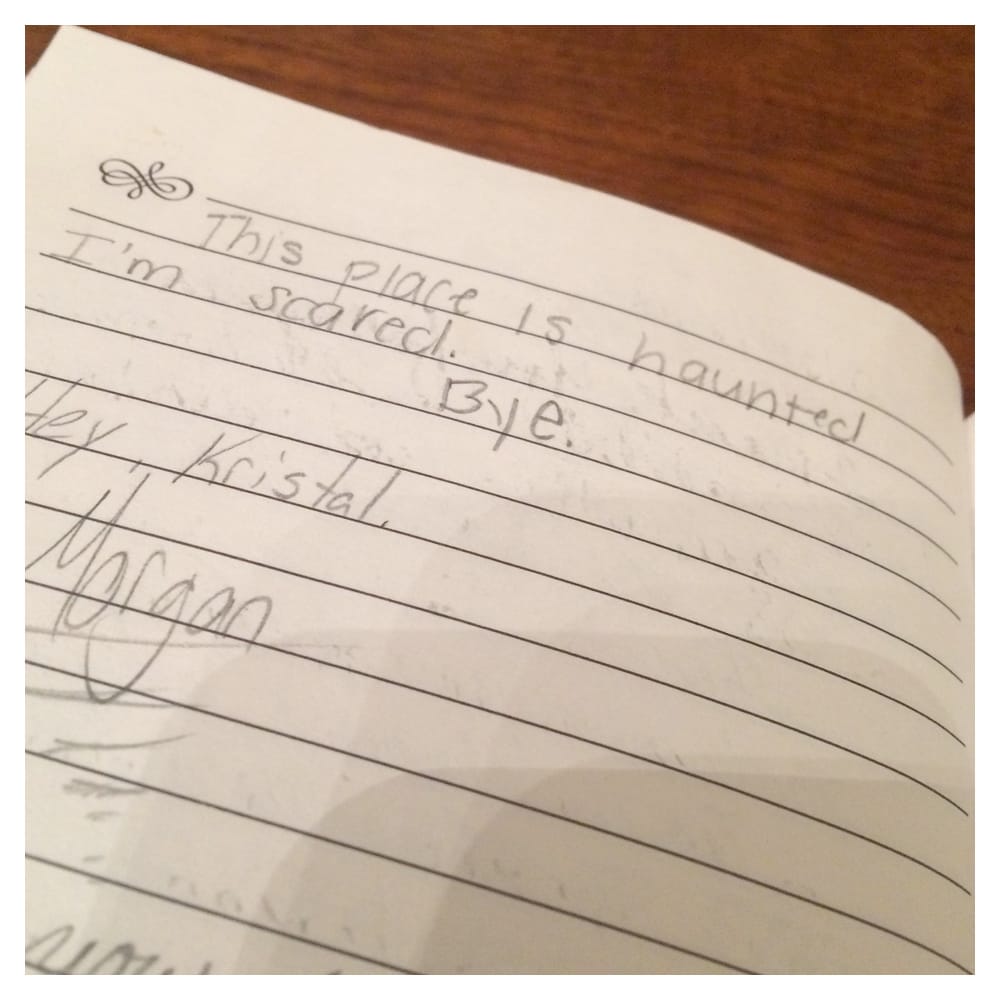 This place is haunted
I'm scared.
Bye.
Hey, Kristal.
Morgan